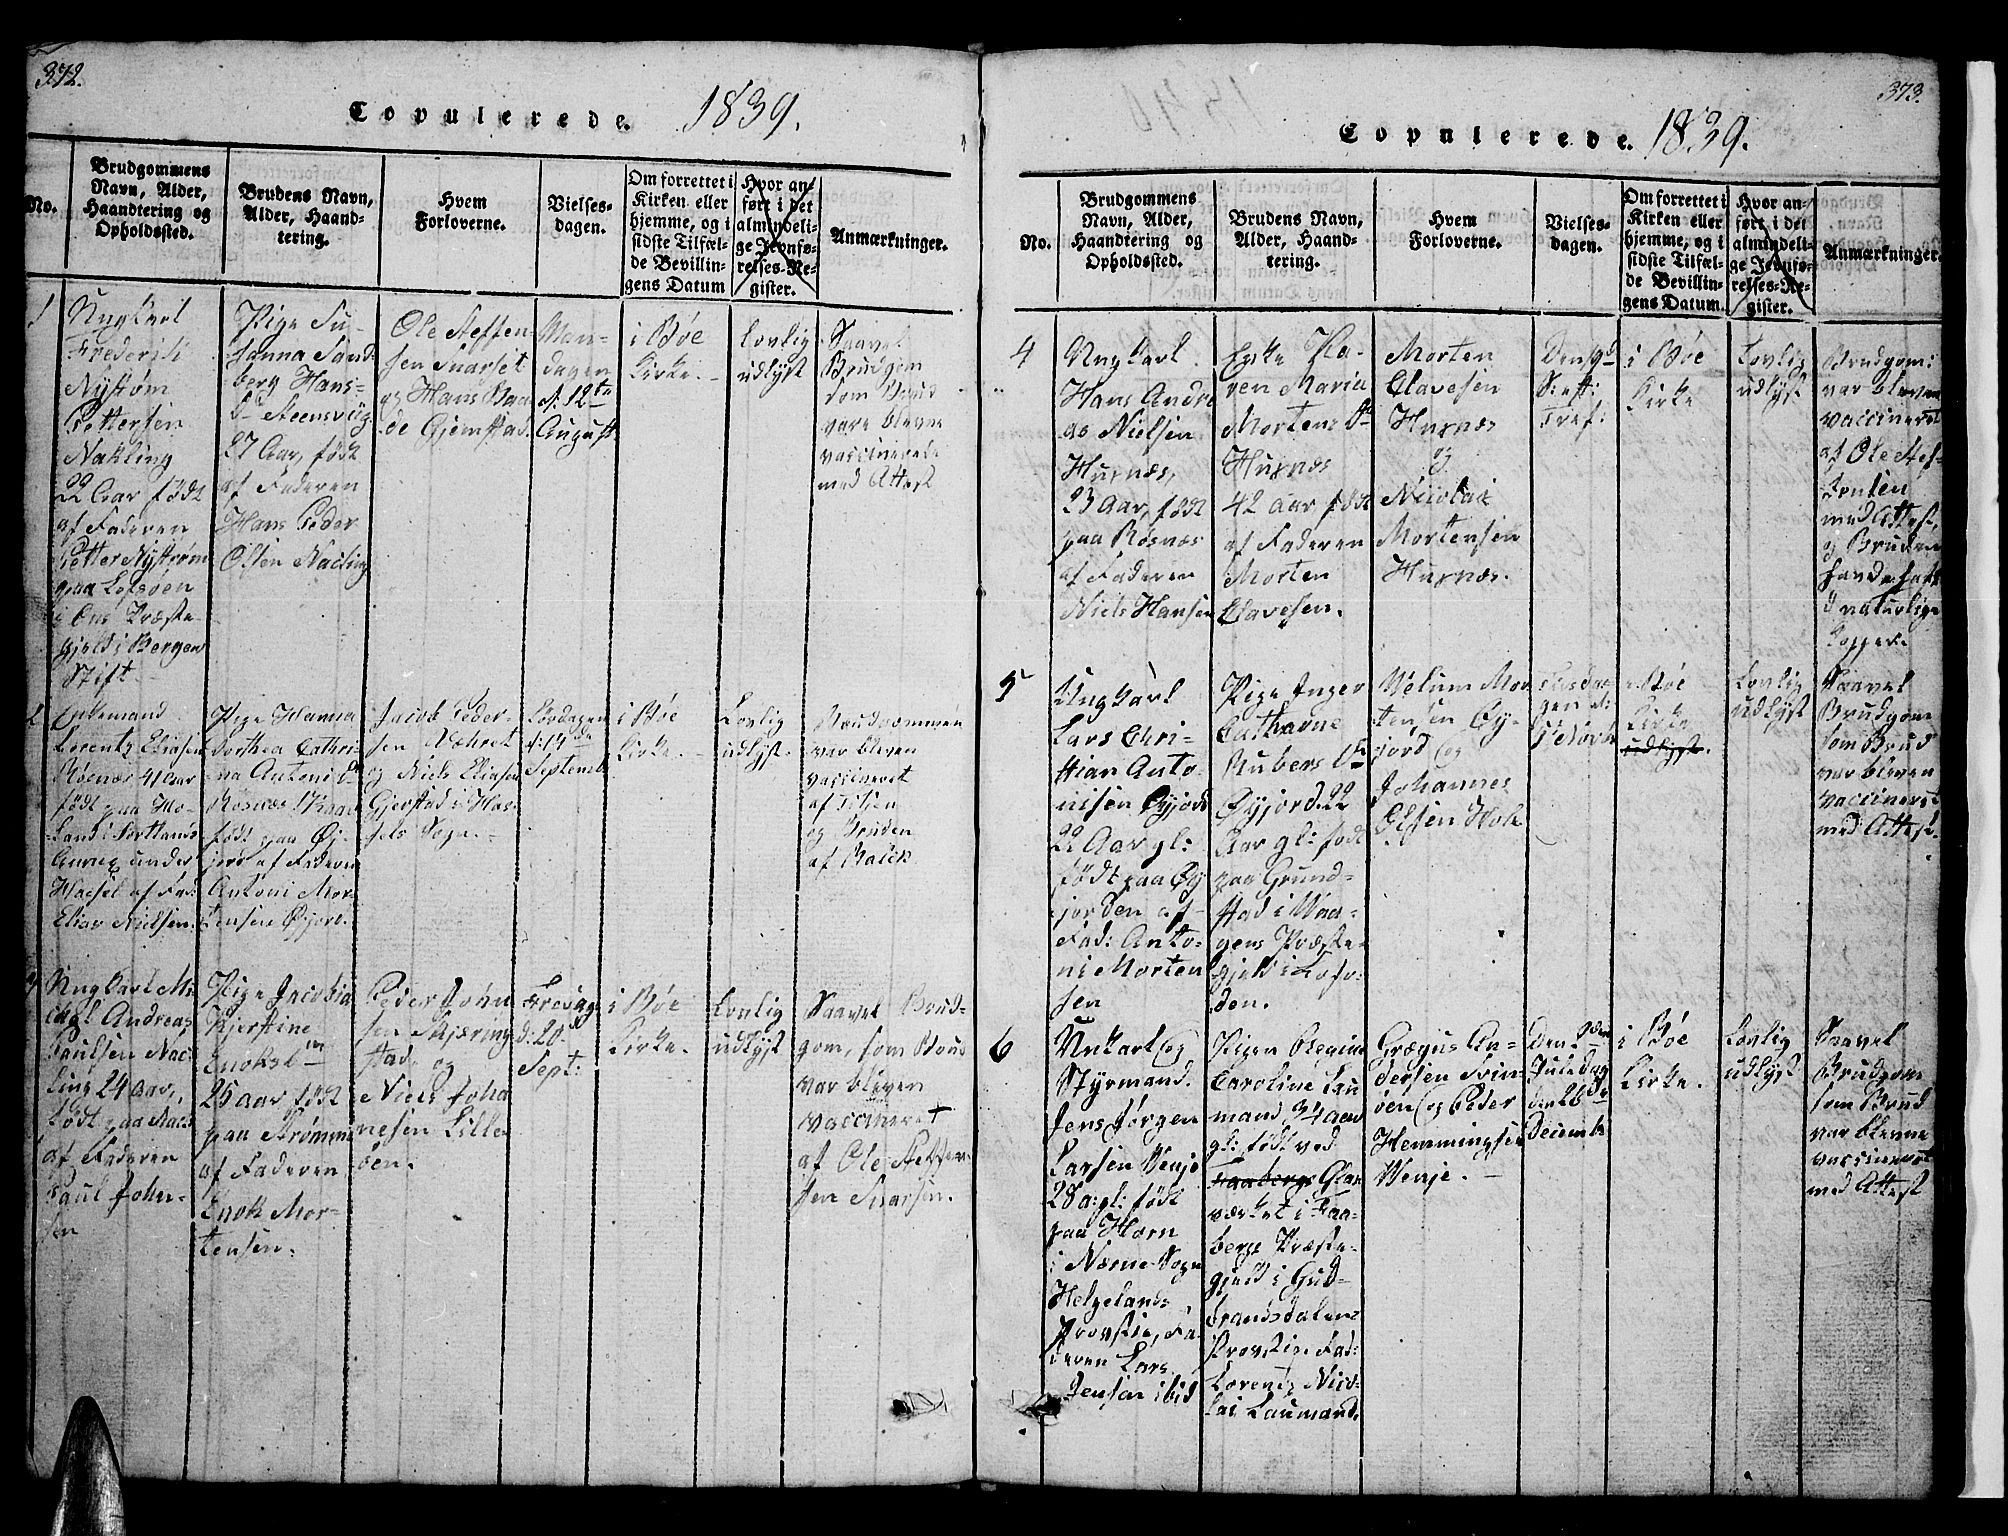 372.
Copulerede. 1839.
No.
Brudgommens
Navn, Alder,
Haandtering og
Opholdssted.
Brudens Navn,
Alder, Haand-
tering.
Hvem
Forloverne.
Vielses-
dagen.
Om forrettet i
Kirken eller
hjemme, og i
sidste Tilfæl-
de Bevillin-
gens Datum
Hvor an-
ført i det
almindeli-
ge Jevnfø-
relses-Re-
gister.
Anmærkninger.
1
Ungkarl
Frederik
Nystrøm
Pettersen
Nakling
22 Aar født
af Faderen
Petter Nystrøm
paa Lepsøen
i Ous Præste-
gjeld i Bergens
Stift
Pige Su-
sanna Sand-
berg Hans-
D. Steensvug
27 Aar, født
af Faderen
Hans Peder
Olsen Nacling
Ole Steffen-
sen Snarset
og Hans Baa
de Gjemstad.
Man-
dagen
d: 12te
August
i Bøe
Kirke.
Lovlig
udlyst
Saavel
Brudgom
som Brud
vare blevne
vaccinerede
med Attest
2
Enkemand
Lorentz Eliasen
Røsnæs 41 Aar
født paa Ho-
land i Sortlands
Annex under
Hassel af Fad:
Elias Nielsen.
Pige Hanna
Dorthea Cathri-
na Antoni Dr
Røsnæs Aar
født paa Øy-
jord af Faderen
Antoni Mor-
tensen Øyjord.
Jacob Peder-
sen Næhret
og Niels Eliasen
Gjerstad i Has-
sels Sogn.
Løverdagen
d: 14de
Septemb
i Bøe
Kirke.
Lovlig
udlyst.
Brudgommen
var bleven
vaccineret
af
og Bruden
af Balck
3
Ungkarl Mi-
chael Andreas
Paulsen Nac-
ling 24 aar,
født paa Nacl
af Faderen
Paul John-
sen
Pige Jacobia
Kjerstine
Enoks Dr
25 aar født
paa Strømmen
af Faderen
Enok Mor-
tensen.
Peder John
sen Skjering
stad og
Niels Joha
nesen Lille
øen.
Fredag
d: 20de
Sept:
i Bøe
Kirke.
Lovlig
udlyst
Saavel Brud-
gom, som Brud
var bleven
vaccineret
af Ole Steffen-
sen Snarsen.
373.
Copulerede. 1839.
No.
Brudgommens
Navn, Alder,
Haandtering og
Opholdssted.
Brudens Navn,
Alder, Haand-
tering.
Hvem
Forloverne.
Vielses-
dagen.
Om forrettet i
Kirken eller
hjemme, og i
sidste Tilfæl-
de Bevillin-
gens Datum.
Hvor an-
ført i det
almindeli-
ge Jevnfø-
relses-Re-
gister.
Anmærkninger.
4
Ungkarl
Hans Andre
as Nielsen
Husnæs,
23 Aar, født
paa Røsnæs
af Faderen
Niels Hansen
Enke Ka-
ren Maria
Mortens Dr
Husnæs
42 aar født
af Faderen
Morten
Olavesen.
Morten
Olavesen
Husnæs
og
Nicolai
Mortensen
Husnæs.
Den 9de
Sept:
Tref:
i Bøe
Kirke
Lovlig
udlyst
Brudgom:
var bleven
vaccineret
af Ole Stef-
fensen
med Attest,
og Bruden
havde haft
d naturlige
Kopper.
5
Ungkarl
Lars Chri-
stian Anto-
nisen Øyjord
22 Aar gl:
født paa Øy
jorden af
Fad: Anto-
ni Morten
sen
Pige Inger
Cathrine
Rubers Dr
Øyjord. 22
Aar gl: født
paa Grund-
stad i Waa-
gens Præste-
gjeld i Lofo-
den.
Welum Mor
tensen Øy-
jord og
Johannes
Olsen Hok
Tirsdag
gen d:
5 Novb
i Bøe
Kirke
udlyst.
Lovlig
udlyst
Saavel
Brudgom
som Brud
var bleven
vaccineret
med Attest.
6
Unkarl og
Styrmand.
Jens Jørgen
Larsen Wenje
28 a: gl: født
paa Horn
i Næsne Sogn
Helgelands
Provstie, Fa-
deren Lars
Jensen ibid
Pigen Olegine
Caroline Lau
mand 34 aar
gl: født ved
Faabergs Glas
værket i Faa-
bergs Præste-
gjeld i Gud-
brandsdalens
Provstie Fad:
Lorentz Nico-
lai Laumand.
Græsus An-
dersen Svin-
øen og Peder
Hemmingsen
Wenje.
Den 2den
Juledag
den 26de
Decemb
i Bøe
Kirke.
Lovlig
udlyst
Saavel
Brudgom
som Brud
var blevne
vaccineret
med Attest